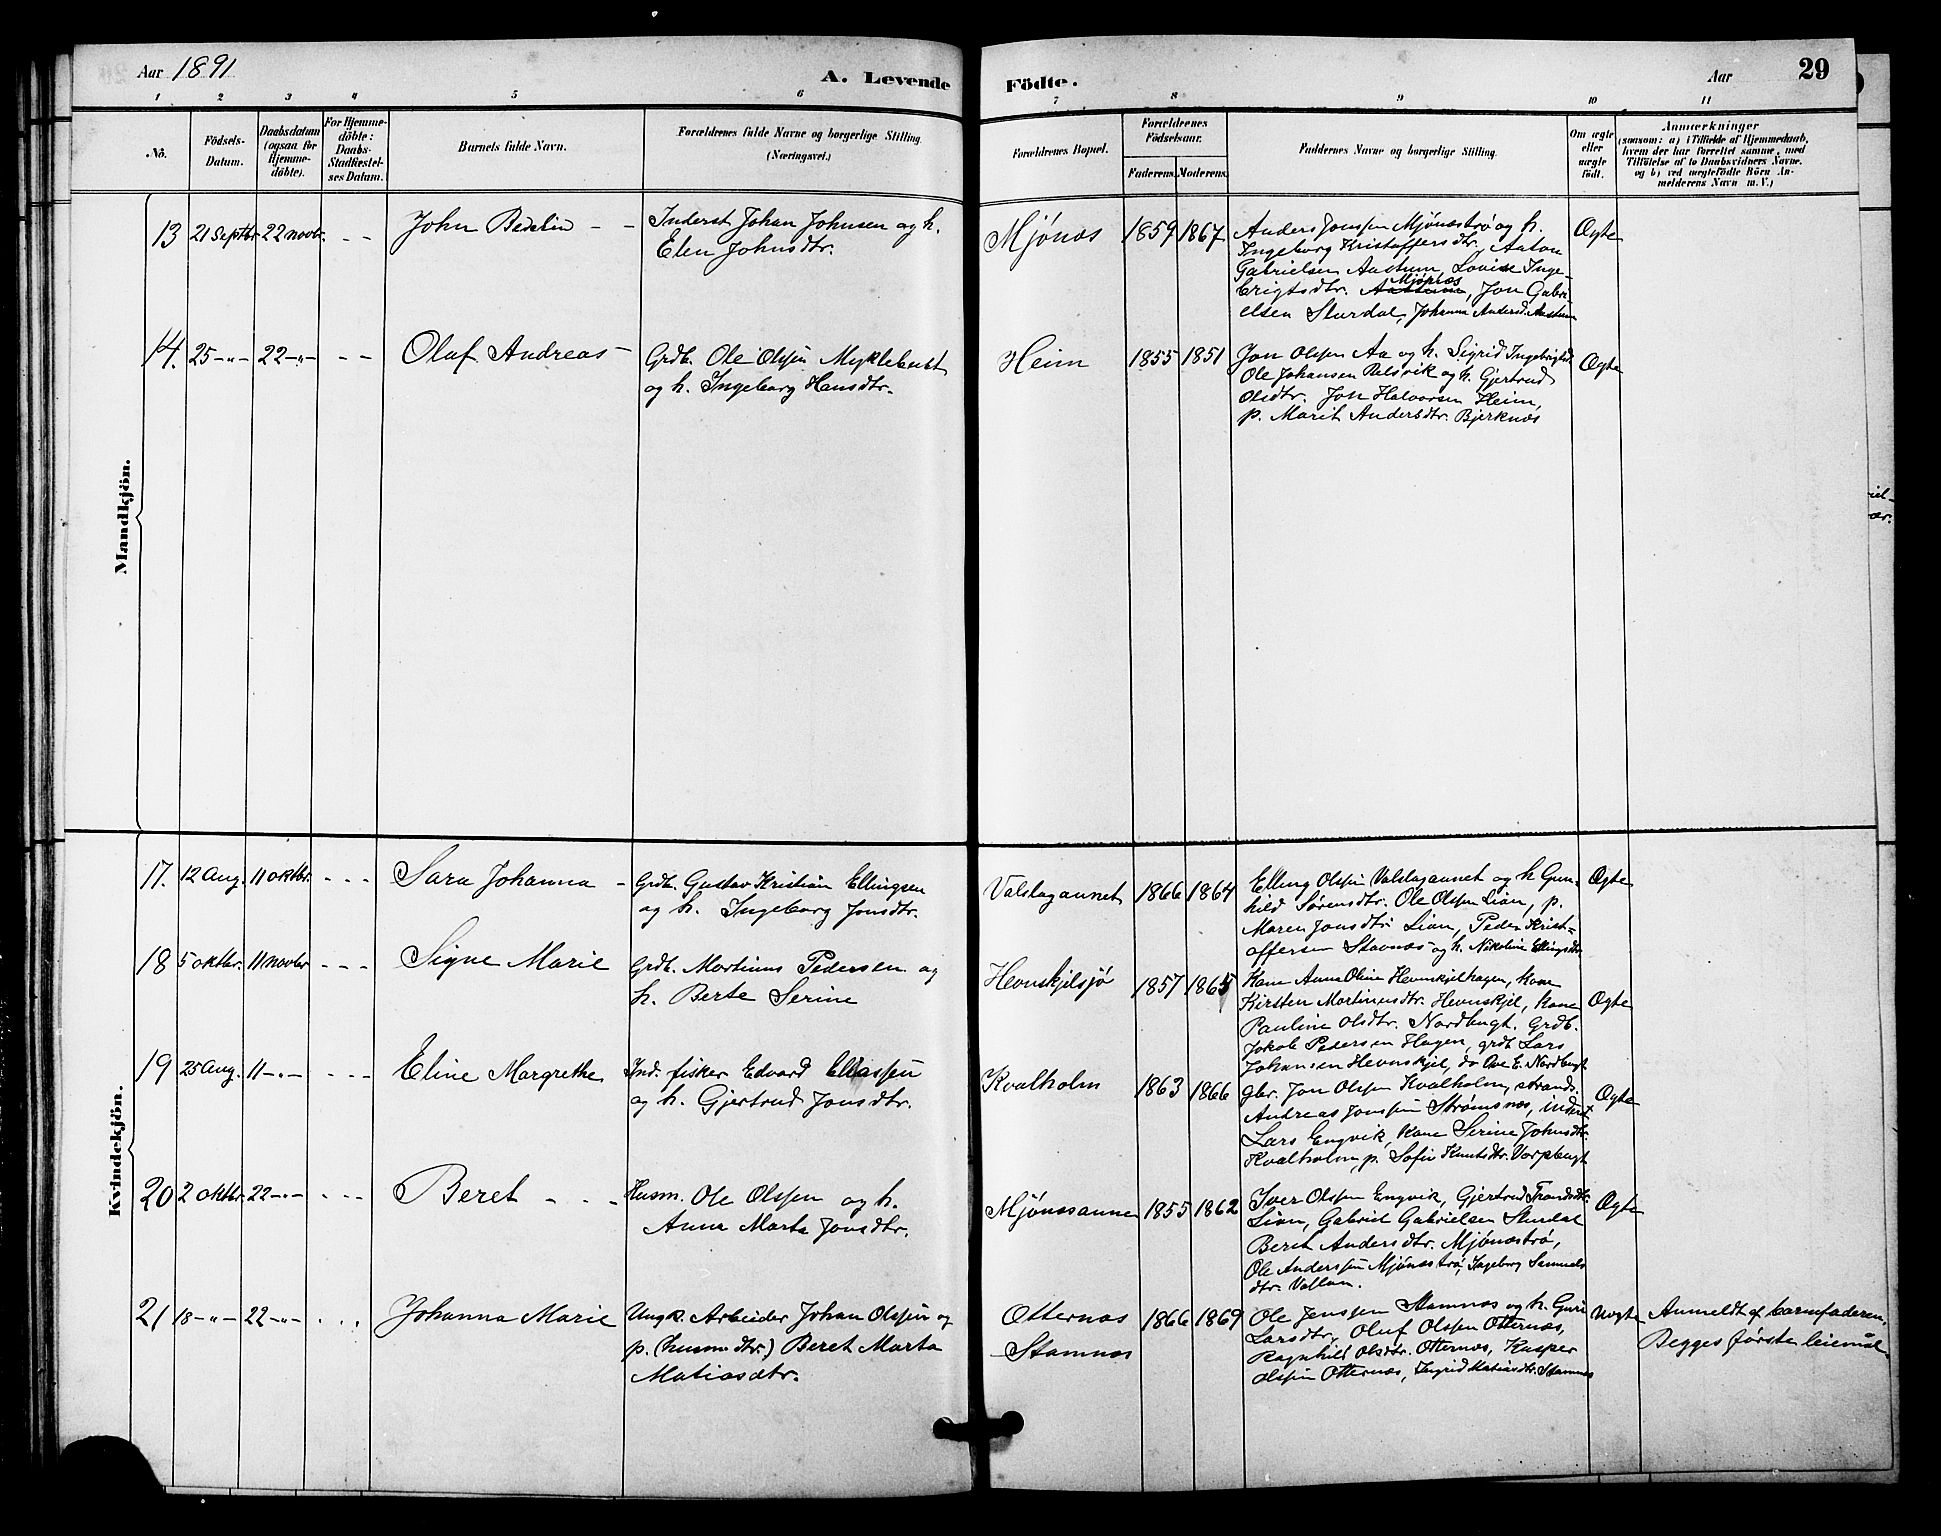 Aar 1891
A. Levende Födte.
Aar
29
1 2 3 4 5 6 7 8 9 10 11
No.
Födsels-
Datum.
Daabsdatum
(ogsaa for
Hjemme-
döbte).
For Hjemme-
döbte:
Daabs-
Stadfæstel-
ses Datum.
Barnets fulde Navn.
Forældrenes fulde Navne og borgerlige Stilling.
(Næringsvei.)
Forældrenes Bopæl.
Forældrenes
Födselsaar.
Faderens. Moderens.
Faddernes Navne og borgerlige Stilling.
Om ægte
eller
uægte
födt.
Anmærkninger
(saasom: a) i Tilfælde af Hjemmedaab,
hvem der har forrettet samme, med
Tilföielse af to Daabsvidners Navne.
og b) ved uægtefödte Börn An-
melderens Navn m. V.)
Mandkjön.
13 21 Septbr. 22 novbr. - - John - -
Inderst Johan Johnsen og h.
Elen Johnsdtr.
Mjønæs 1859 1867
Anders Jonssen Mjønæstrø og h.
Ingeborg Kristoffersdtr, Anton
Gabrielsen Aastum, Lovise Inge-
brigtsdtr. Mjønæs, Jon Gabri-
elsen Slurdal, Johanna Andersd. Aastum
Ægte
14. 25 -"- 22 -"- - - Olaf Andreas -
Grdb. Ole Olssen Myklebust
og h. Ingeborg Hansdtr.
Heim 1855 1851
Jon Olssen Aa og h. Sigrid Ingebrigtsd.
Ole Johansen Belsvik og h. Gjertrud
Olsdtr. Jon Halvorsen Heim,
p. Marit Andersdtr. Bjerknæs
Ægte
Kvindekjön.
17. 12 Aug. 11 oktbr. - - - Sara Johanna -
Grdb. Gustav Kristian Ellingsen
og h. Ingeborg Jonsdtr.
Valslagaunet 1866 1864
Elling Olssen Valslagaunet og h Gun-
hild Sørensdtr. Ole Olssen Lian, p.
Maren Jonsdtr Lian, Peder Krist-
offersen Stavnæs og h. Nikoline Ellingsdtr
Ægte
18 5 oktbr. 11 novbr - - - Signe Marie
Grdb. Martinus Pedersen og
h. Berte Serine
Hevnskjelsjø 1857 1865
Kone Anna Oline Hevnskjelhagen, kone
Kirsten Martinusdtr. Hevnskjel, kone
Pauline Olsdtr. Nordbugt. Grdb.
Jakob Pedersen Hagen, grdb Lars
Johansen Hevnskjel, do Ove E. Nordbugt
Ægte
19 25 Aug. 11 -"- - - - Eline Margrethe
Ind. fisker Edvard Eliassen
og h. Gjertrud Jonsdtr.
Kvalholm 1863 1866
gbr. Jon Olssen Kvalholm, strands.
Andreas Jonssen Strømsnæs, inderst
Lars Engvik, kone Serine Johnsdtr.
Kvalholm, p. Sofie Knutsdtr. Vorpbugt
Ægte
20 2 oktbr. 22 -"- - - - Beret - - -
Husm. Ole Olssen og h.
Anna Marta Jonsdtr.
Mjønæsaune 1855 1862
Iver Olssen Engvik, Gjertrud Trondsdtr.
Lian, Gabriel Gabrielsen Slurdal
Beret Andersdtr. Mjønæstrø,
Ole Anderssen Mjønæstrø, Ingeborg Samuels
dtr. Vollan.
Ægte
21 18 -"- 22 -"- - - - Johanna Marie
Ungk. Arbeider Johan Olssen og
p. (husmdtr.) Beret Marta
Matiasdtr.
Otternæs
Stamnæs
1866 1869
Ole Jenssen Stamnæs og h. Guri
Larsdtr, Oluf Olssen Otternæs,
Ragnhild Olsdtr. Otternæs, Kasper
Olssen Otternæs, Ingrid Matiasdtr. Stamnæs
Uægte
Anmeldt af barnefaderen,
Begges første leiemål.